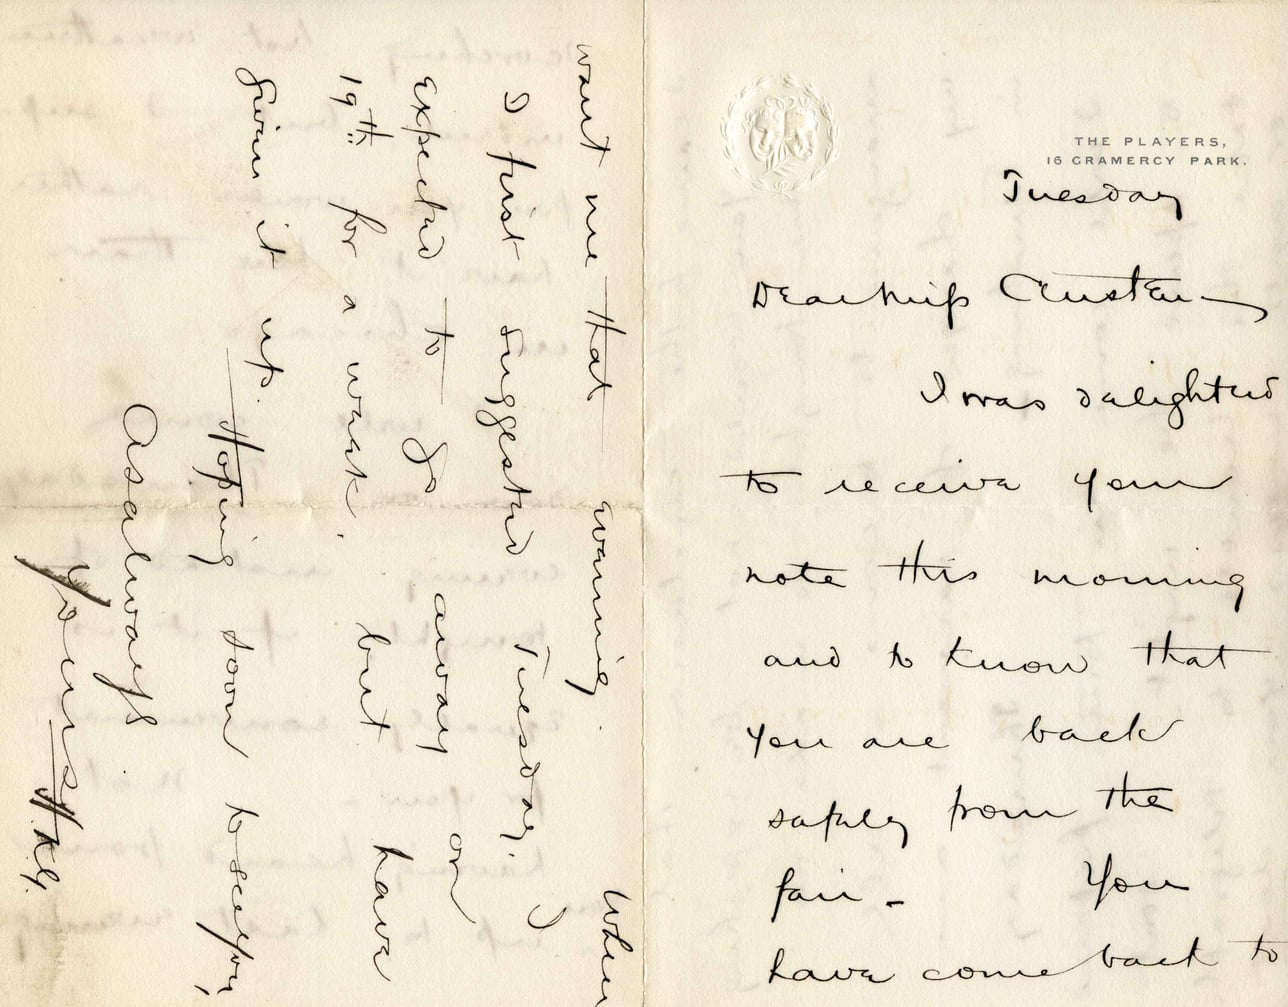 THE PLAYERS,
16 GRAMERCY PARK.
Tuesday
Dear Miss Austen —
I was delighted
to receive your
note this morning
and to know that
you are back
safely from the
fair - You
have come back to
want me that evening. When
I first suggested Tuesday, I
expected to go away on
19th for a week, but have
given it up. Hoping soon to see you,
As always
Yours